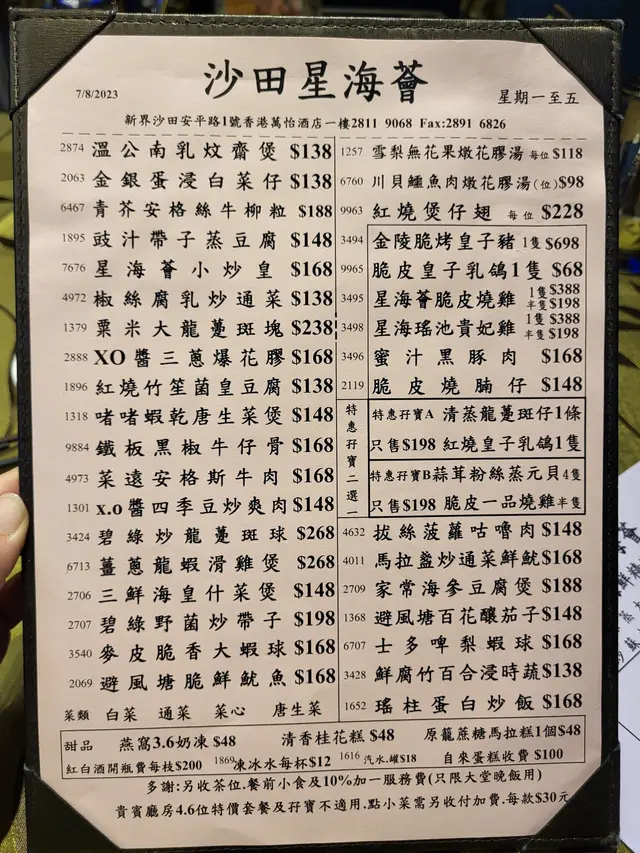 沙田星海薈
7/8/2023
星期一至五
新界沙田安平路1號香港萬怡酒店一樓2811 9068 Fax:2891 6826
2874 溫公南乳炆齋煲 $138
2063 金銀蛋浸白菜仔 $138
6467 青芥安格絲牛柳粒 $188
1895 豉汁帶子蒸豆腐 $148
7676 星海薈小炒皇 $168
4972 椒絲腐乳炒通菜 $138
1379 粟米大龍躉斑塊 $238
2888 XO醬三蔥爆花膠 $168
1896 紅燒竹笙菌皇豆腐 $138
1318 啫啫蝦乾唐生菜煲 $148
9884 鐵板黑椒牛仔骨 $168
4973 菜遠安格斯牛肉 $168
1301 x.o醬四季豆炒爽肉 $148
3424 碧綠炒龍躉斑球 $268
6713 薑蔥龍蝦滑雞煲 $268
2706 三鮮海皇什菜煲 $148
2707 碧綠野菌炒帶子 $198
3540 麥皮脆香大蝦球 $168
2069 避風塘脆鮮魷魚 $168
菜類 白菜 通菜 菜心 唐生菜
1257 雪梨無花果燉花膠湯 每位 $118
6760 川貝鱷魚肉燉花膠湯(位) $98
9963 紅燒煲仔翅 每位 $228
3494 金陵脆烤皇子豬 1隻 $698
9965 脆皮皇子乳鴿1隻 $68
3495 星海薈脆皮燒雞 1隻 $388 半隻 $198
3498 星海瑤池貴妃雞 1隻 $388 半隻 $198
3496 蜜汁黑豚肉 $168
2119 脆皮燒腩仔 $148
特惠孖寶二選一
特惠孖寶A 清蒸龍躉斑仔1條
只售$198 紅燒皇子乳鴿1隻
特惠孖寶B蒜茸粉絲蒸元貝4隻
只售$198 脆皮一品燒雞半隻
4632 拔絲菠蘿咕嚕肉 $148
4011 馬拉盞炒通菜鮮魷 $168
2709 家常海參豆腐煲 $188
1368 避風塘百花釀茄子 $148
6707 士多啤梨蝦球 $168
3428 鮮腐竹百合浸時蔬 $138
1652 瑤柱蛋白炒飯 $168
甜品 燕窩3.6奶凍 $48 清香桂花糕 $48 原籠蔗糖馬拉糕1個$48
紅白酒開瓶費每枝$200 1869凍冰水每杯$12 1616 汽水.罐$18 自來蛋糕收費 $100
多謝:另收茶位.餐前小食及10%加一服務費(只限大堂晚飯用)
貴賓廳房4.6位特價套餐及孖寶不適用.點小菜需另收付加費.每款$30元